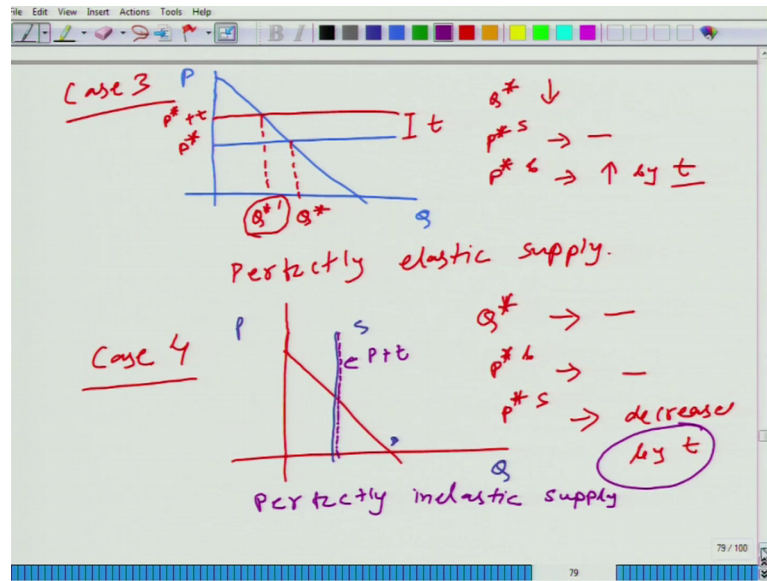 File Edit View Insert Actions Tools Help
B I
Case 3
P
P*+t
P*
t
Q*' Q*
Q
Q* ↓
P* s → —
P* b → ↑ by t
Perfectly elastic supply.
Case 4
P
S
← P+t
Q
Q* → —
P* b → —
P* s → decreases
by t
Perfectly inelastic supply
79 / 100
79